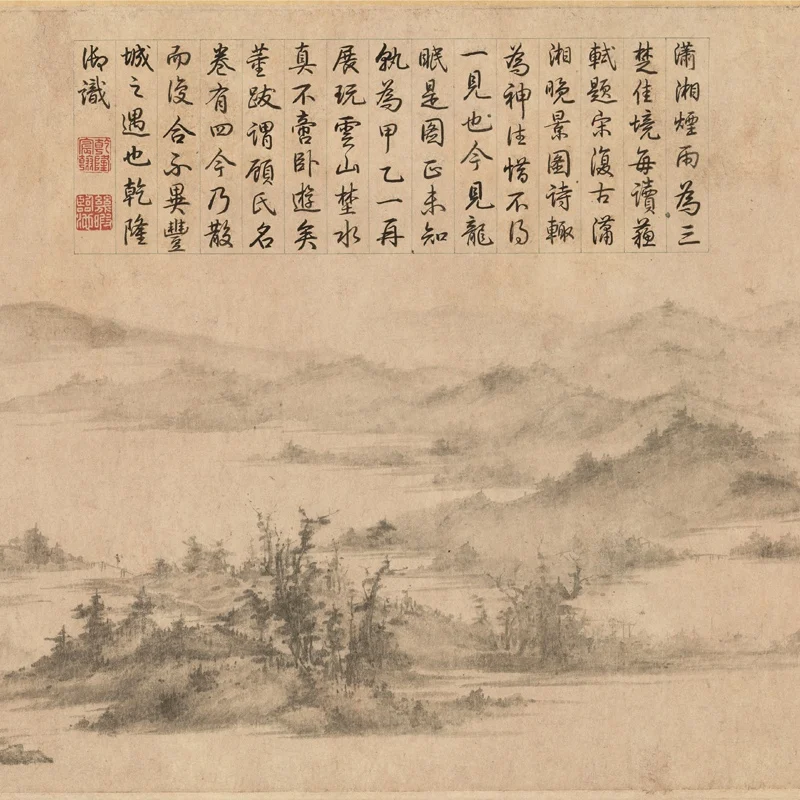 瀟湘煙雨為三
楚佳境每讀蘇
軾題宋復古瀟
湘晚景圖詩輙
為神往惜不得
一見也今見龍
眠是圖正未知
孰為甲乙一再
展玩雲山埜水
真不啻臥遊矣
董跋謂顧氏名
卷有四今乃散
而復合不異豐
城之遇也乾隆
御識
乾隆宸翰